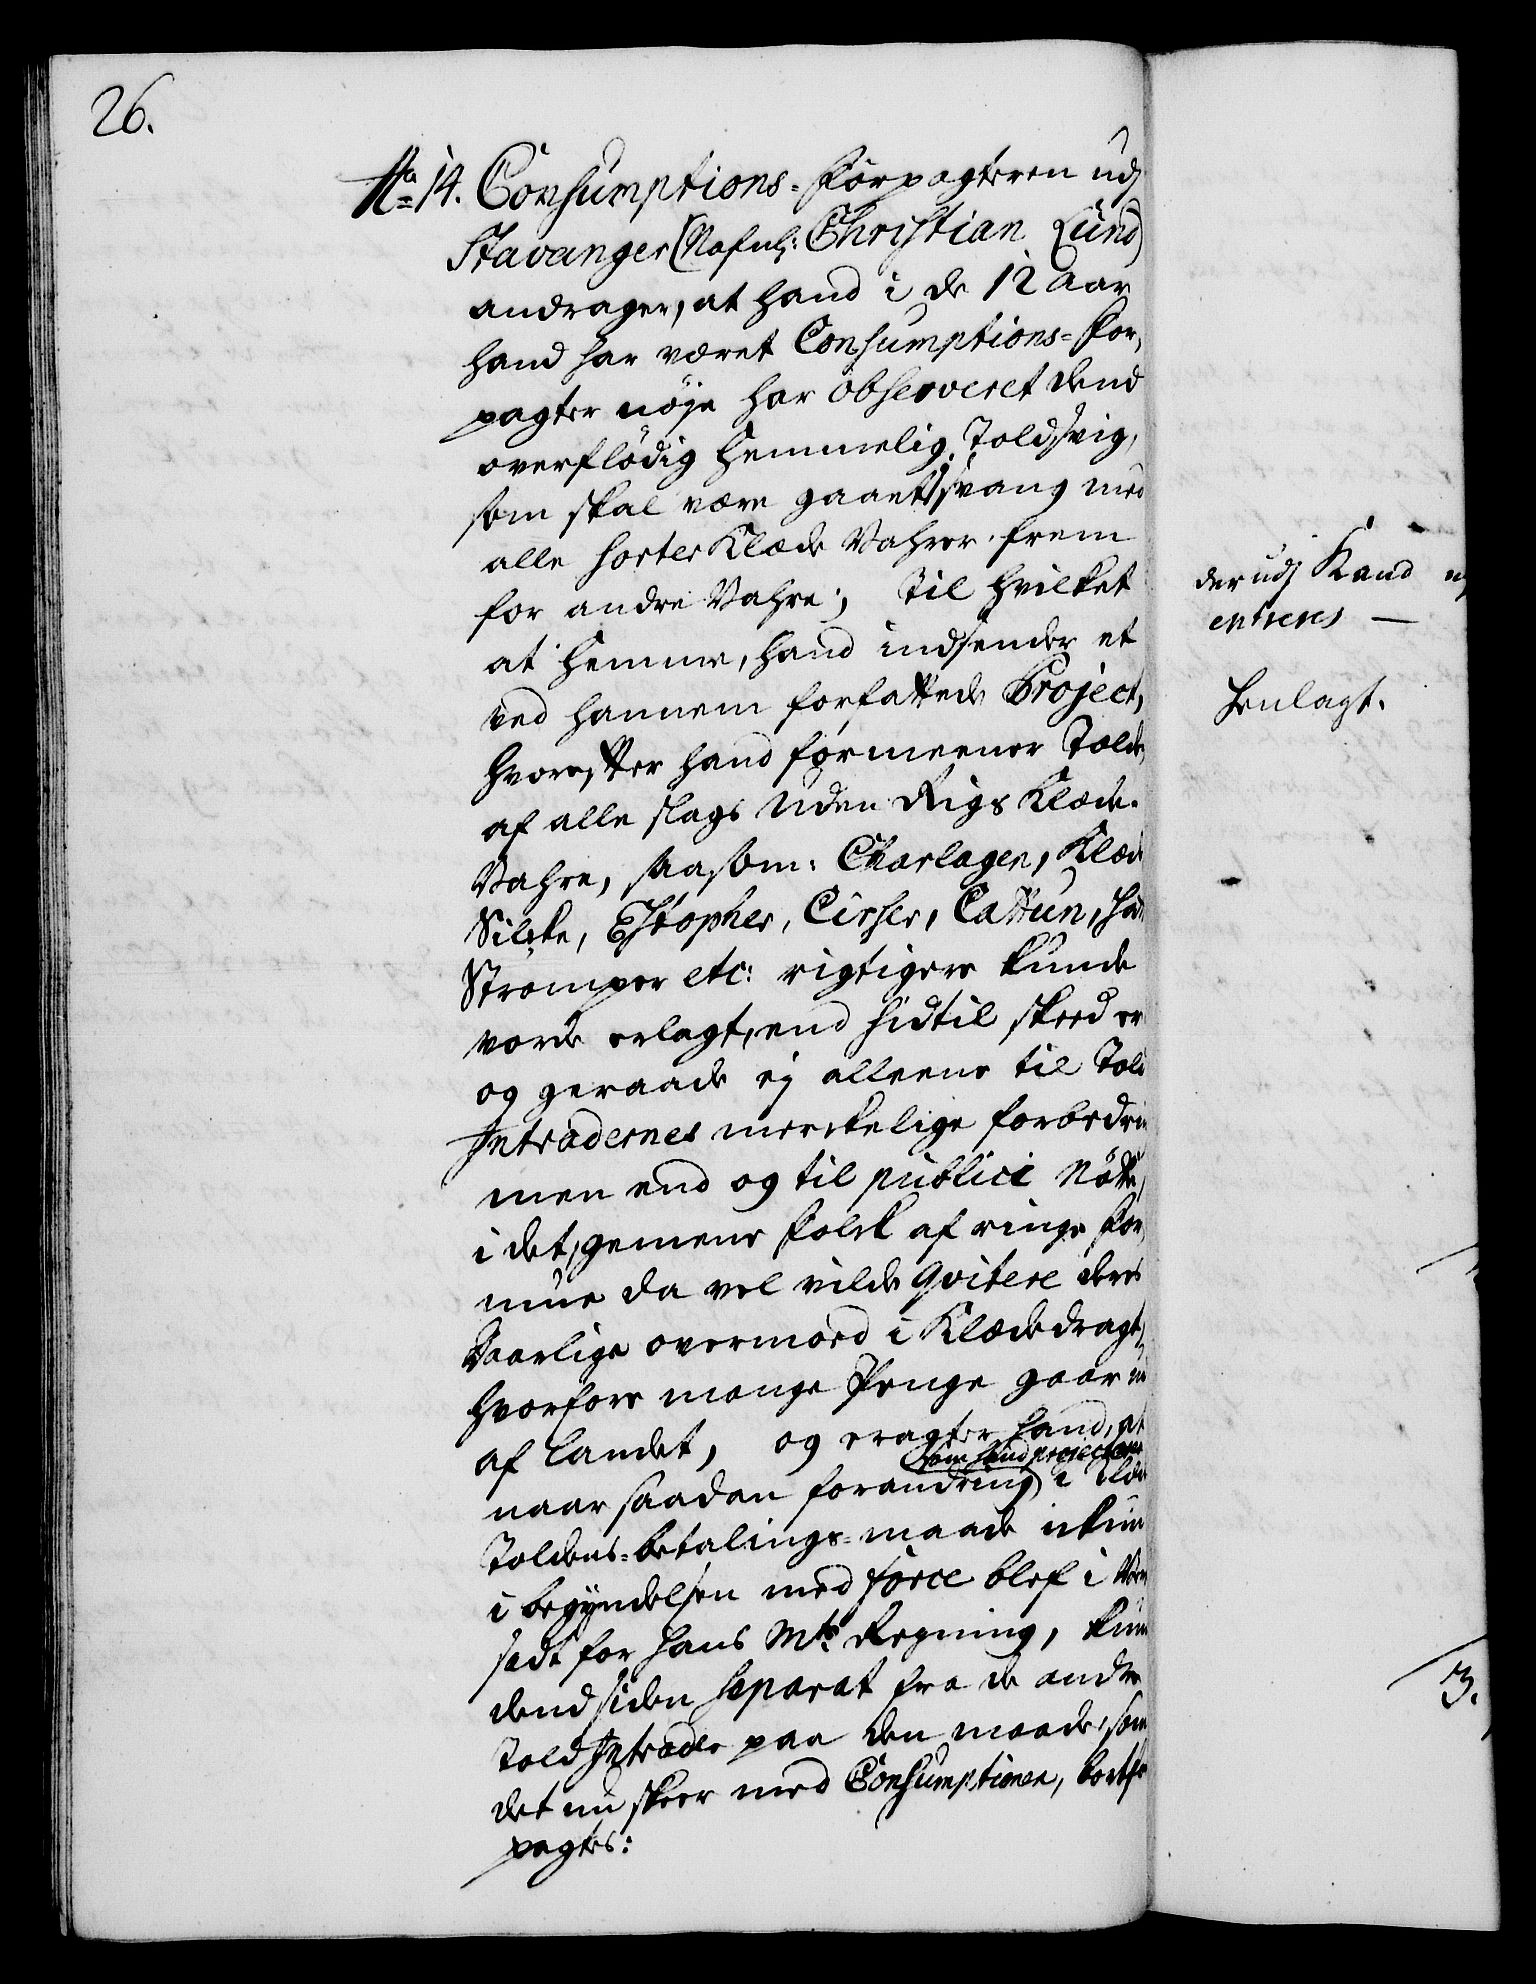 26.
No 14. Consumptions-Forpagteren udj
Stavanger (Nafnl: Christian Lund)
andrager, at hand i de 12 Aar
hand har været Consumptions-For,
pagter nöje har observeret dend
overflödig hemmelig Toldsvig,
som skal være gaaet i svang med
alle Sorter Klæde Vahrer frem
for andre Vahre; Til hvilket
at hemme, hand indsender et
ved hannem forfattede Project,
hvorefter hand formeener Tolde,
af alle slags Uden Rigs Klæde-
Vahre, saasom: Charlagen, Klæde
Silcke, Estopher, Cirser, Cattun,
Strömper etc: rigtigere kunde
vorde erlagt, end hidtil skeed er
og geraade ej alleene til Told
Intradernes merckelige forbedrin
men end og til publici Nötte,
i det, gemene Folck af ringe For,
mue da vel vilde qvitere deres
Daarlige overmoed i Klædedragt,
hvorfore mange Penge gaar ud
af Landet, og eragter hand, at
som hand projecterer
naar saadan forandring i Klæde
Toldens-betalings-maade ickun
i begyndelsen med force blef i Værk
sadt for Hans Mts Regning, kunde
dend siden separat fra de andre
Told Intrader paa den maade, som
det nu skeer med Consumptionen, bortfor
pagtes:
derudj Kand ej
entreres —
Henlagt.
3.